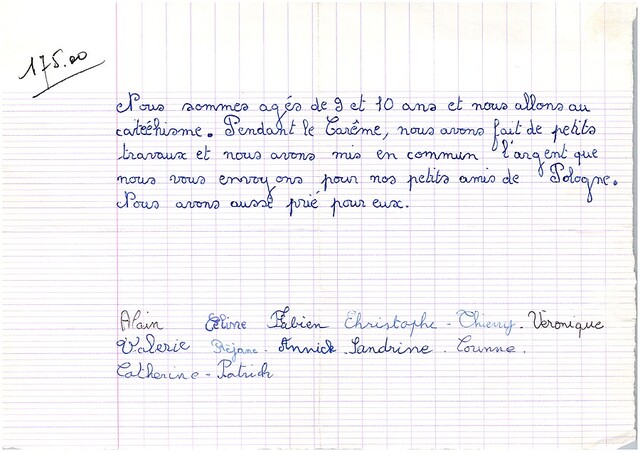 175.00
Nous sommes agés de 9 et 10 ans et nous allons au
catéchisme. Pendant le Carême, nous avons fait de petits
travaux et nous avons mis en commun l'argent que
nous vous envoyons pour nos petits amis de Pologne.
Nous avons aussi prié pour eux.
Alain Céline Fabien Christophe - Thierry. Véronique
Valerie Réjane. Annick. Sandrine. Corinne.
Catherine - Patrick